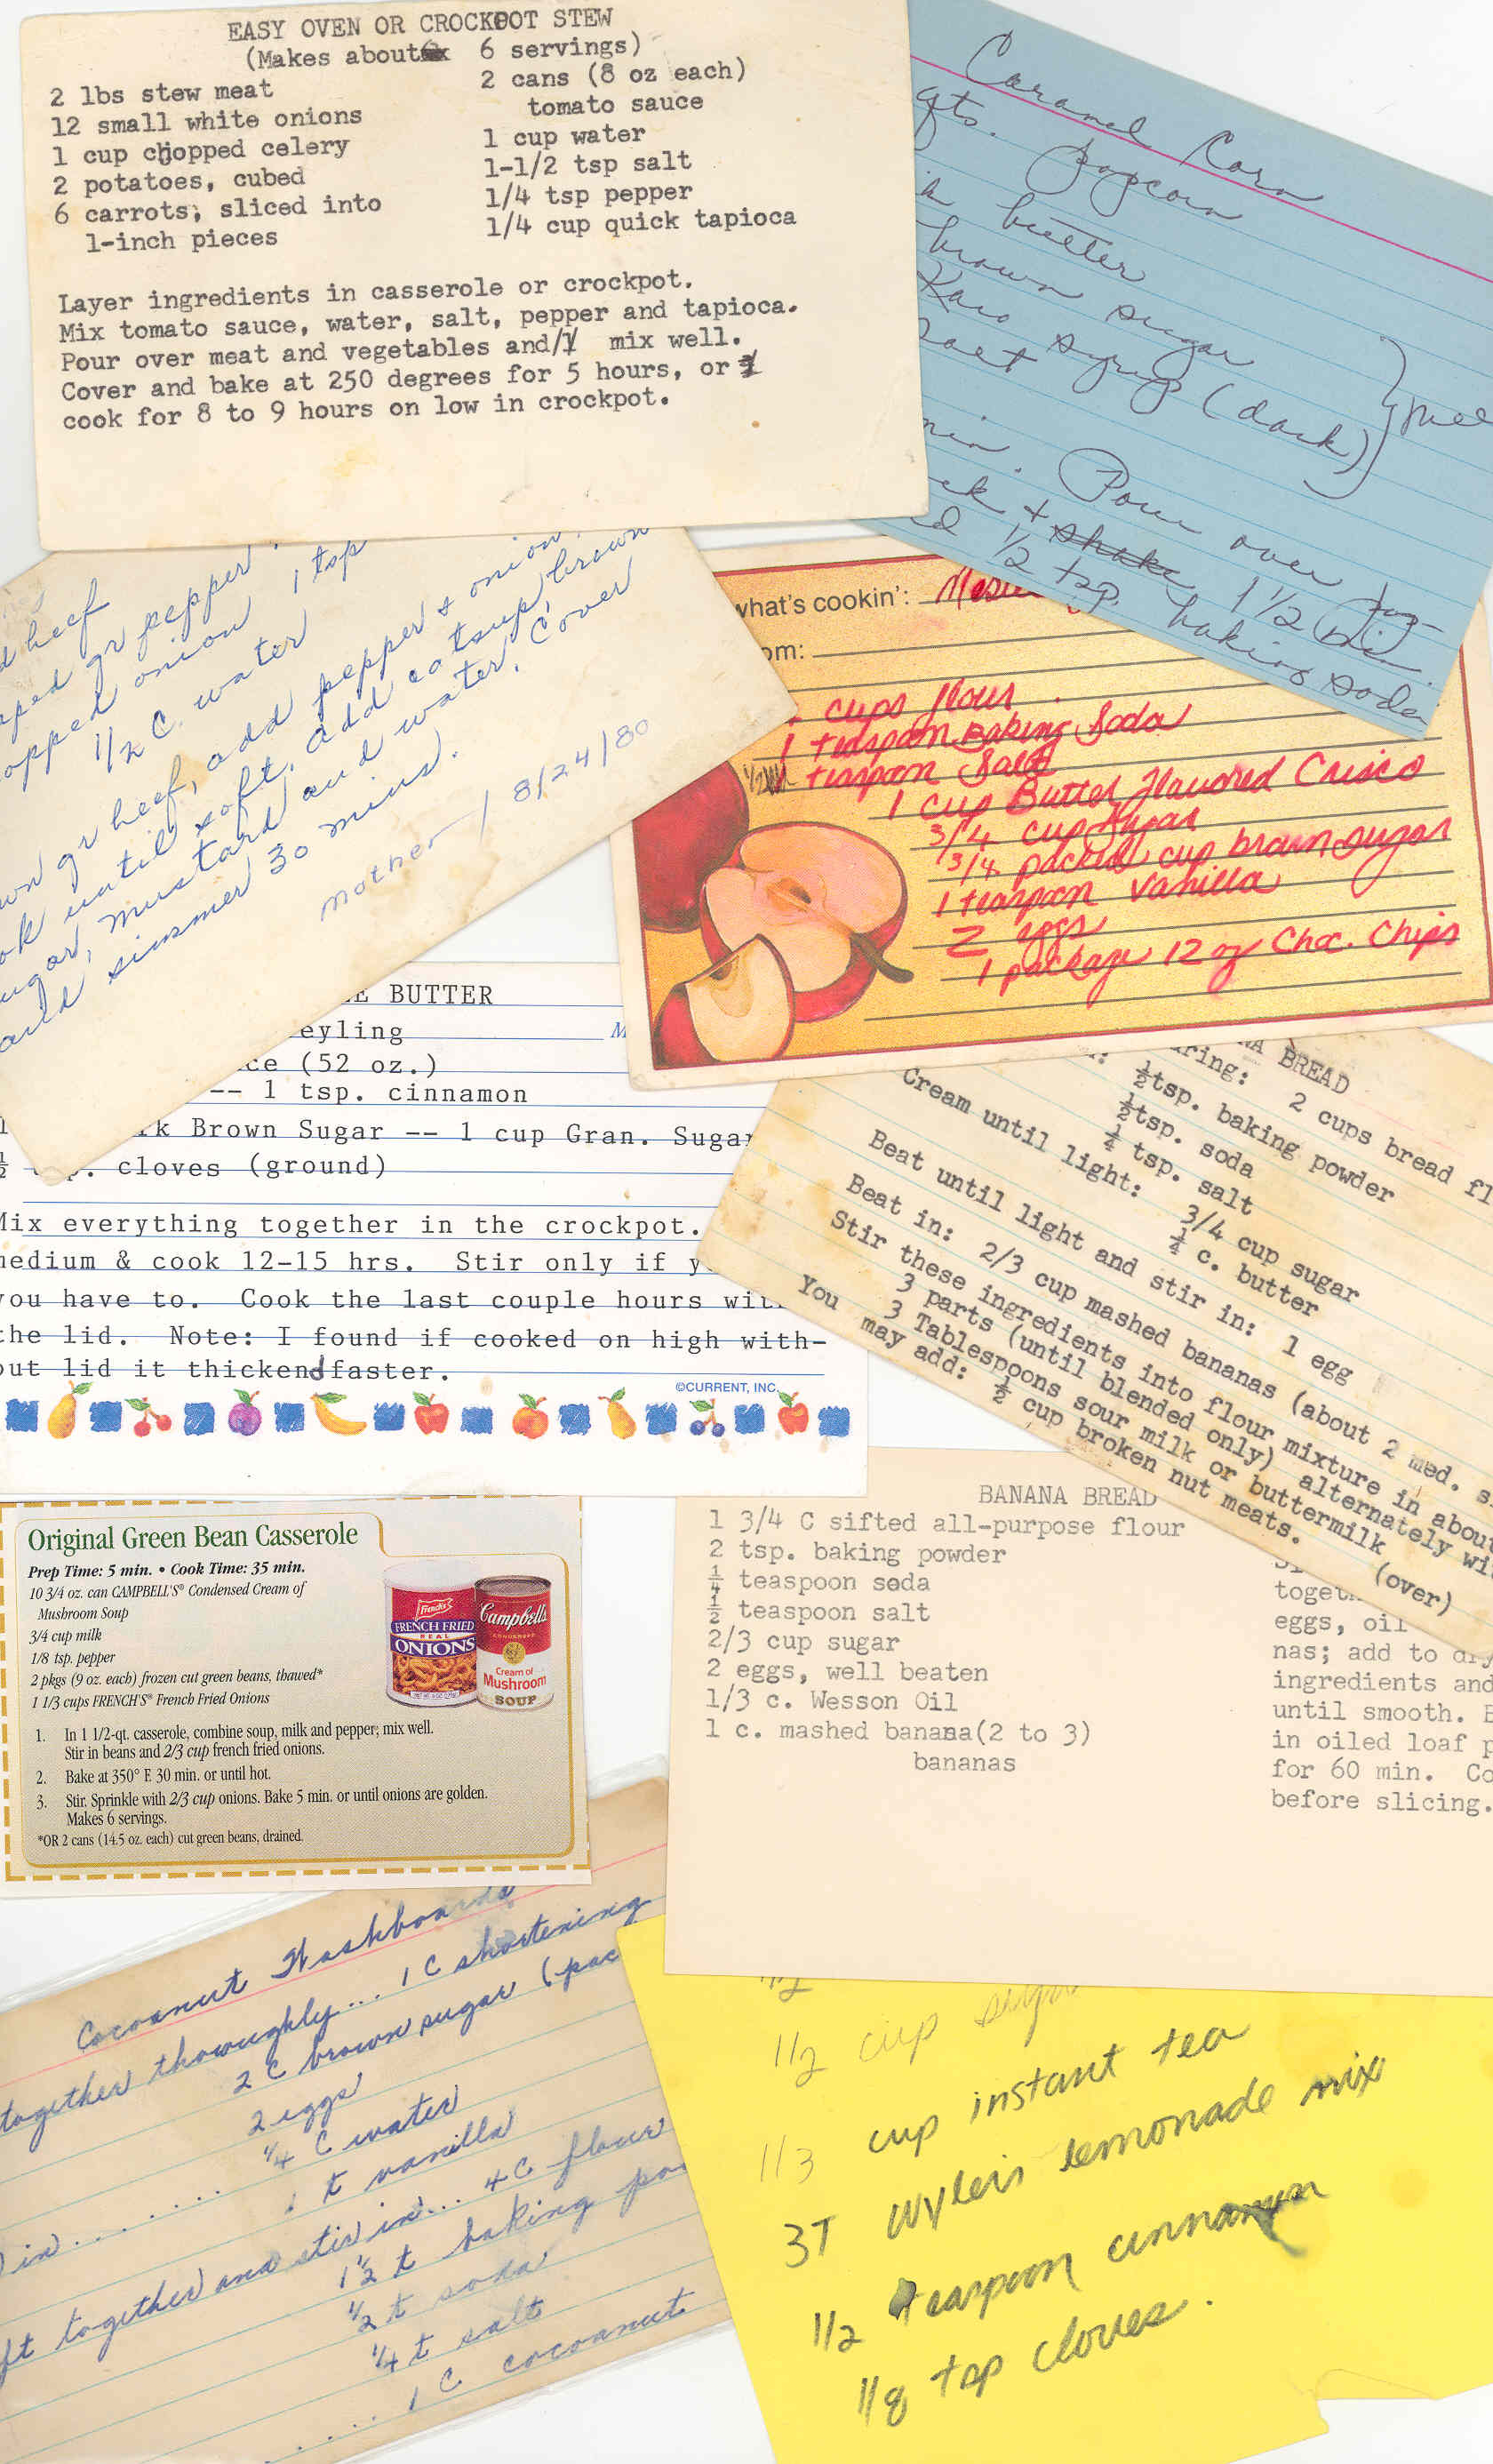 EASY OVEN OR CROCKPOT STEW
(Makes about 6 servings)
2 lbs stew meat
12 small white onions
1 cup chopped celery
2 potatoes, cubed
6 carrots, sliced into
1-inch pieces
2 cans (8 oz each)
tomato sauce
1 cup water
1-1/2 tsp salt
1/4 tsp pepper
1/4 cup quick tapioca
Layer ingredients in casserole or crockpot.
Mix tomato sauce, water, salt, pepper and tapioca.
Pour over meat and vegetables and mix well.
Cover and bake at 250 degrees for 5 hours, or
cook for 8 to 9 hours on low in crockpot.
Caramel Corn
qts. popcorn
butter
brown sugar
Karo syrup (dark)
Salt
min. Pour over
+ shake 1 1/2 min
1/2 tsp. baking soda
beef
gr pepper
onion 1 tsp
1/2 C. water
gr beef, add pepper & onion,
until soft, add catsup, brown
sugar, mustard and water. Cover
and simmer 30 mins.
mother / 8/24/80
what's cookin':
cups flour
1 teaspoon Baking Soda
1/2 teaspoon Salt
1 cup Butter Flavored Crisco
3/4 cup Sugar
3/4 packed cup brown sugar
1 teaspoon vanilla
2 eggs
1 package 12 oz Choc. Chips
BUTTER
eyling
(52 oz.)
-- 1 tsp. cinnamon
Brown Sugar -- 1 cup Gran. Sugar
1/2 cloves (ground)
Mix everything together in the crockpot.
medium & cook 12-15 hrs. Stir only if
you have to. Cook the last couple hours
the lid. Note: I found if cooked on high with-
out lid it thickend faster.
©CURRENT, INC.
BREAD
2 cups bread
½tsp. baking powder
½tsp. soda
¼ tsp. salt
Cream until light: 3/4 cup sugar
¼ c. butter
Beat until light and stir in: 1 egg
Beat in: 2/3 cup mashed bananas (about 2 med.
Stir these ingredients into flour mixture in about
3 parts (until blended only) alternately
3 Tablespoons sour milk or buttermilk
You may add: ½ cup broken nut meats.
(over)
Original Green Bean Casserole
Prep Time: 5 min. • Cook Time: 35 min.
10 3/4 oz. can CAMPBELL'S® Condensed Cream of
Mushroom Soup
3/4 cup milk
1/8 tsp. pepper
2 pkgs (9 oz. each) frozen cut green beans, thawed*
1 1/3 cups FRENCH'S® French Fried Onions
1. In 1 1/2-qt. casserole, combine soup, milk and pepper; mix well.
Stir in beans and 2/3 cup french fried onions.
2. Bake at 350° F. 30 min. or until hot.
3. Stir. Sprinkle with 2/3 cup onions. Bake 5 min. or until onions are golden.
Makes 6 servings.
*OR 2 cans (14.5 oz. each) cut green beans, drained.
French's
FRENCH FRIED
REAL
ONIONS
Campbell's
CONDENSED
Cream of
Mushroom
SOUP
BANANA BREAD
1 3/4 C sifted all-purpose flour
2 tsp. baking powder
¼ teaspoon soda
½ teaspoon salt
2/3 cup sugar
2 eggs, well beaten
1/3 c. Wesson Oil
1 c. mashed banana(2 to 3)
bananas
eggs, oil
nas; add to
ingredients and
until smooth.
in oiled loaf
for 60 min.
before slicing.
Cocoanut Washboards
together thoroughly... 1 C shortening
2 C brown sugar
2 eggs
1/4 C water
1 t vanilla
in........
together and stir in... 4 C flour
1 1/2 t baking
1/2 t soda
1/4 t salt
.... 1 C cocoanut
1/2
1/2 cup
1/3 cup instant tea
3T Wylers lemonade mix
1/2 teaspoon cinnamon
1/8 tsp cloves.